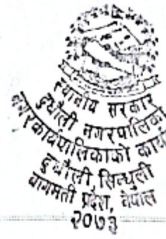 स्थानीय सरकार
दुधौली नगरपालिका
नगरकार्यपालिकाको कार्या
दुधौली, सिन्धुली
बागमती प्रदेश, नेपाल
२०७३